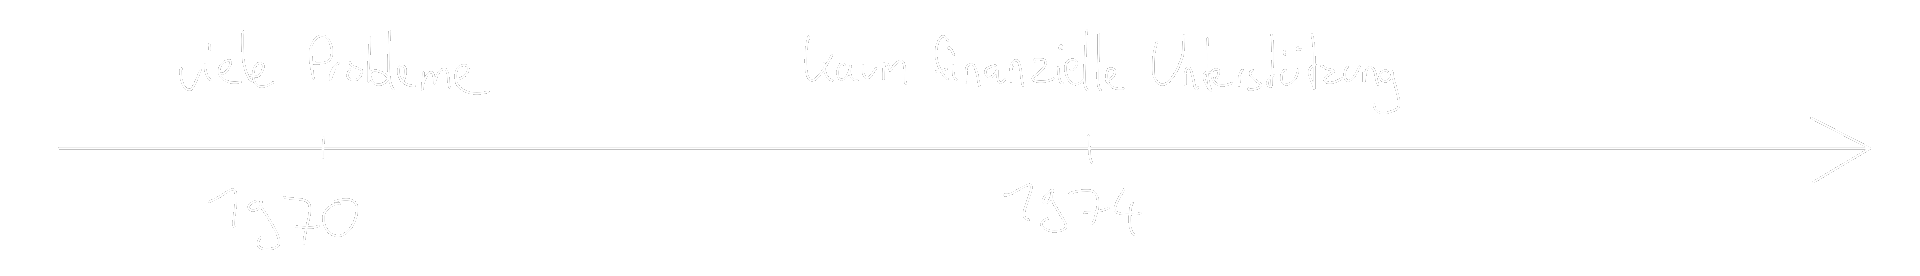 viele Probleme
kaum finanzielle Unterstützung
1970
1974